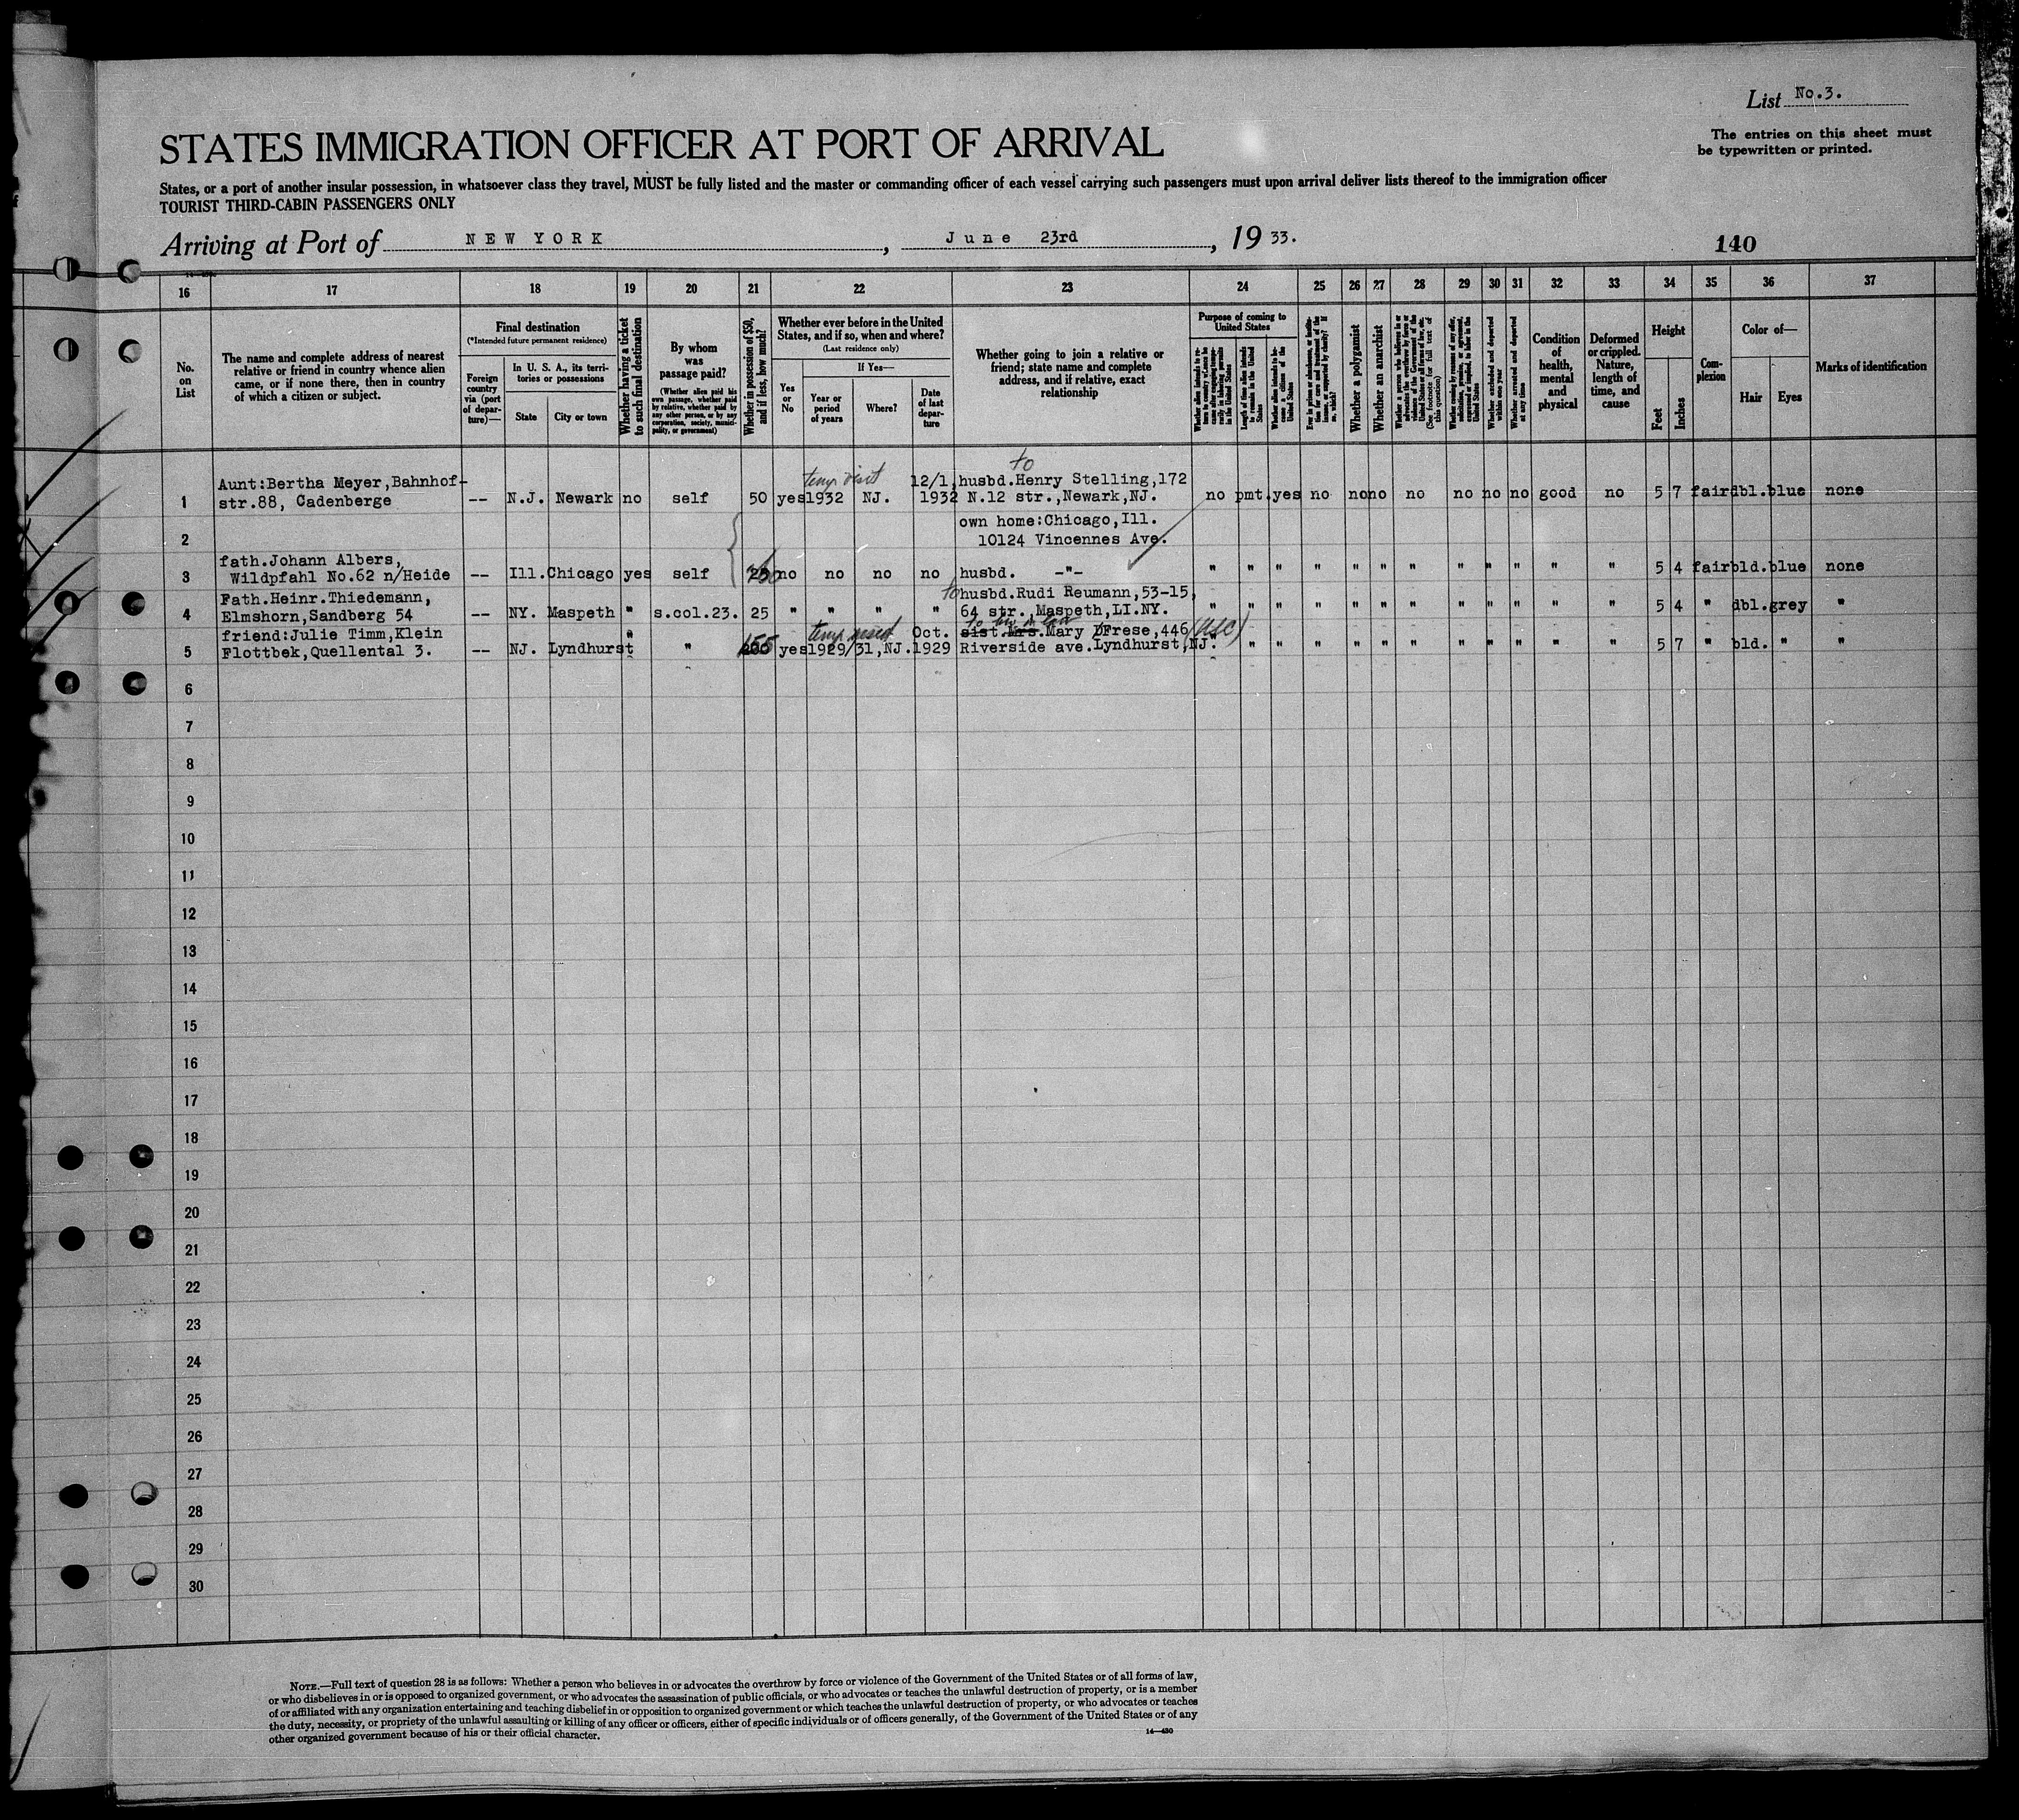 List No.3.
STATES IMMIGRATION OFFICER AT PORT OF ARRIVAL
The entries on this sheet must
be typewritten or printed.
States, or a port of another insular possession, in whatsoever class they travel, MUST be fully listed and the master or commanding officer of each vessel carrying such passengers must upon arrival deliver lists thereof to the immigration officer
TOURIST THIRD-CABIN PASSENGERS ONLY
Arriving at Port of NEW YORK, June 23rd, 1933.
140
16 17 18 19 20 21 22 23 24 25 26 27 28 29 30 31 32 33 34 35 36 37
No.
on
List
The name and complete address of nearest
relative or friend in country whence alien
came, or if none there, then in country
of which a citizen or subject.
Final destination
(*Intended future permanent residence)
Foreign
country
via (port
of depar-
ture)—
In U. S. A., its terri-
tories or possessions
State
City or town
Whether having a ticket
to such final destination
By whom
was
passage paid?
(Whether alien paid his
own passage, whether paid
by relative, whether paid by
any other person, or by any
corporation, society, munici-
pality, or government)
Whether in possession of $50,
and if less, how much?
Whether ever before in the United
States, and if so, when and where?
(Last residence only)
Yes
or
No
If Yes—
Year or
period
of years
Where?
Date
of last
depar-
ture
Whether going to join a relative or
friend; state name and complete
address, and if relative, exact
relationship
Purpose of coming to
United States
Length of time alien intends
to remain in the United
States
Whether alien intends to be-
come a citizen of the
United States
Whether a polygamist
Whether an anarchist
Whether excluded and deported
within one year
Whether arrested and deported
at any time
Condition
of
health,
mental
and
physical
Deformed
or crippled.
Nature,
length of
time, and
cause
Height
Feet
Inches
Com-
plexion
Color of—
Hair
Eyes
Marks of identification
to
temp visit
Aunt:Bertha Meyer,Bahnhof- 12/1, husbd.Henry Stelling,172
1 str.88, Cadenberge -- N.J. Newark no self 50 yes 1932 NJ. 1932 N.12 str.,Newark,NJ. no pmt. yes no no no no no no no good no 5 7 fair dbl. blue none
own home:Chicago,Ill.
2 10124 Vincennes Ave.
fath.Johann Albers,
3 Wildpfahl No.62 n/Heide -- Ill. Chicago yes self no no no no husbd. -"- " " " " " " " " " " " " 5 4 fair bld. blue none
Fath.Heinr.Thiedemann, to husbd.Rudi Reumann,53-15,
4 Elmshorn,Sandberg 54 -- NY. Maspeth " s.col.23. 25 " " " " 64 str.,Maspeth,LI.NY. " " " " " " " " " " " " 5 4 " dbl. grey "
friend:Julie Timm,Klein " Oct. sist.Mrs.Mary Frese,446
5 Flottbek,Quellental 3. -- NJ. Lyndhurst " yes 1929/31,NJ. 1929 Riverside ave.Lyndhurst,NJ. " " " " " " " " " " " " 5 7 " bld. " "
6
7
8
9
10
11
12
13
14
15
16
17
18
19
20
21
22
23
24
25
26
27
28
29
30
NOTE.—Full text of question 28 is as follows: Whether a person who believes in or advocates the overthrow by force or violence of the Government of the United States or of all forms of law,
or who disbelieves in or is opposed to organized government, or who advocates the assassination of public officials, or who advocates or teaches the unlawful destruction of property, or is a member
of or affiliated with any organization entertaining and teaching disbelief in or opposition to organized government or which teaches the unlawful destruction of property, or who advocates or teaches
the duty, necessity, or propriety of the unlawful assaulting or killing of any officer or officers, either of specific individuals or of officers generally, of the Government of the United States or of any
other organized government because of his or their official character.
14—430